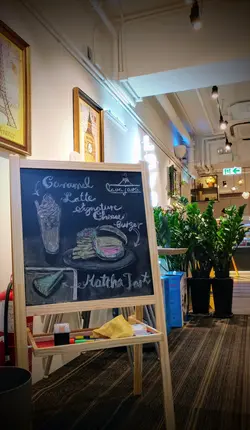 Caramel
Latte
Signature
Cheese
Burger
Matcha Tart